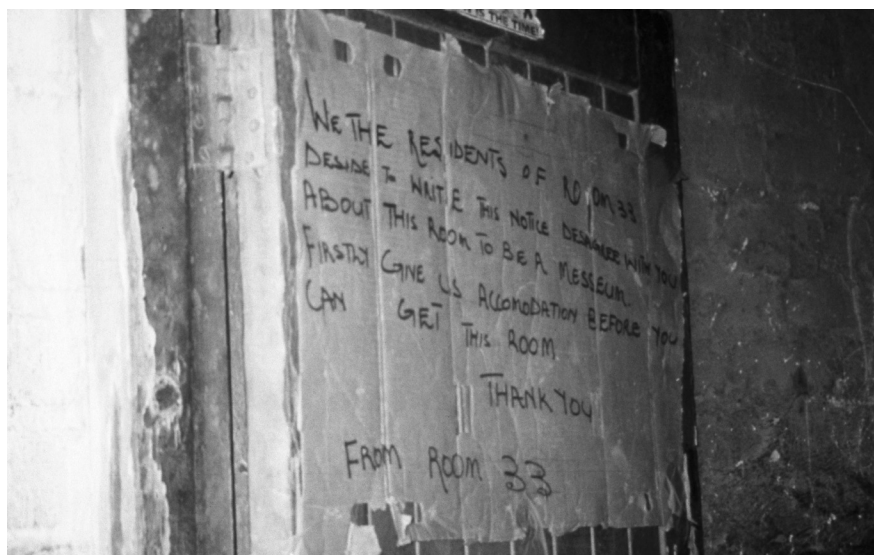 IS THE TIME!
WE THE RESIDENTS OF ROOM 33
DESIDE TO WRITE THIS NOTICE DESAGREE WITH YOU
ABOUT THIS ROOM TO BE A MESSEUM.
FIRSTLY GIVE US ACCOMODATION BEFORE YOU
CAN GET THIS ROOM
THANK YOU
FROM ROOM 33